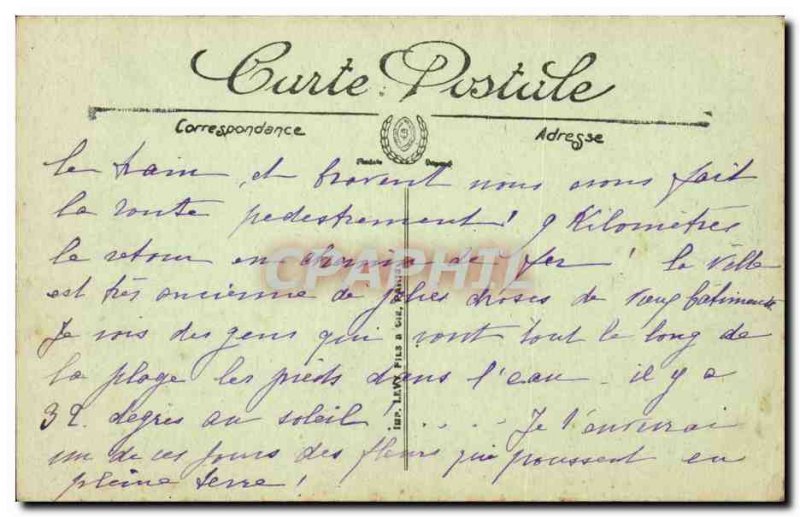 Carte Postale
Correspondance
Adresse
le train, et bravent nous avons fait
la route pedestrement! 9 Kilomètres
le retour en chemin de fer! la ville
est très ancienne de jolies choses de vieux bâtiments
Je vois des gens qui vont tout le long de
la plage les pieds dans l'eau - il y a
32. degrés au soleil! .... Je t'enverrai
un de ces jours des fleurs qui poussent en
pleine terre!
IMP. LEVY FILS & CIE, PARIS
CPAPHIL